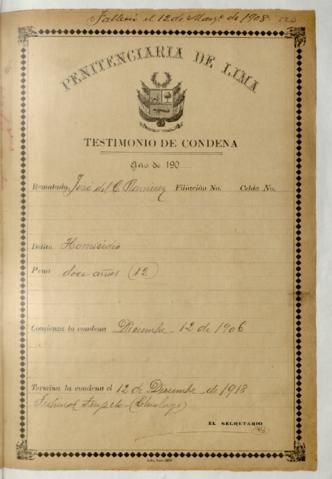 Falleció el 12 de Marzo de 1908
PENITENCIARIA DE LIMA
TESTIMONIO DE CONDENA
Año de 190
Rematado, José del C. Ramirez Filiación No. Celda No.
Delito Homicidio
Pena doce años (12)
Comienza la condena Diciembre 12 de 1906
Termina la condena el 12 de Diciembre de 1918
Tribunal
EL SECRETARIO